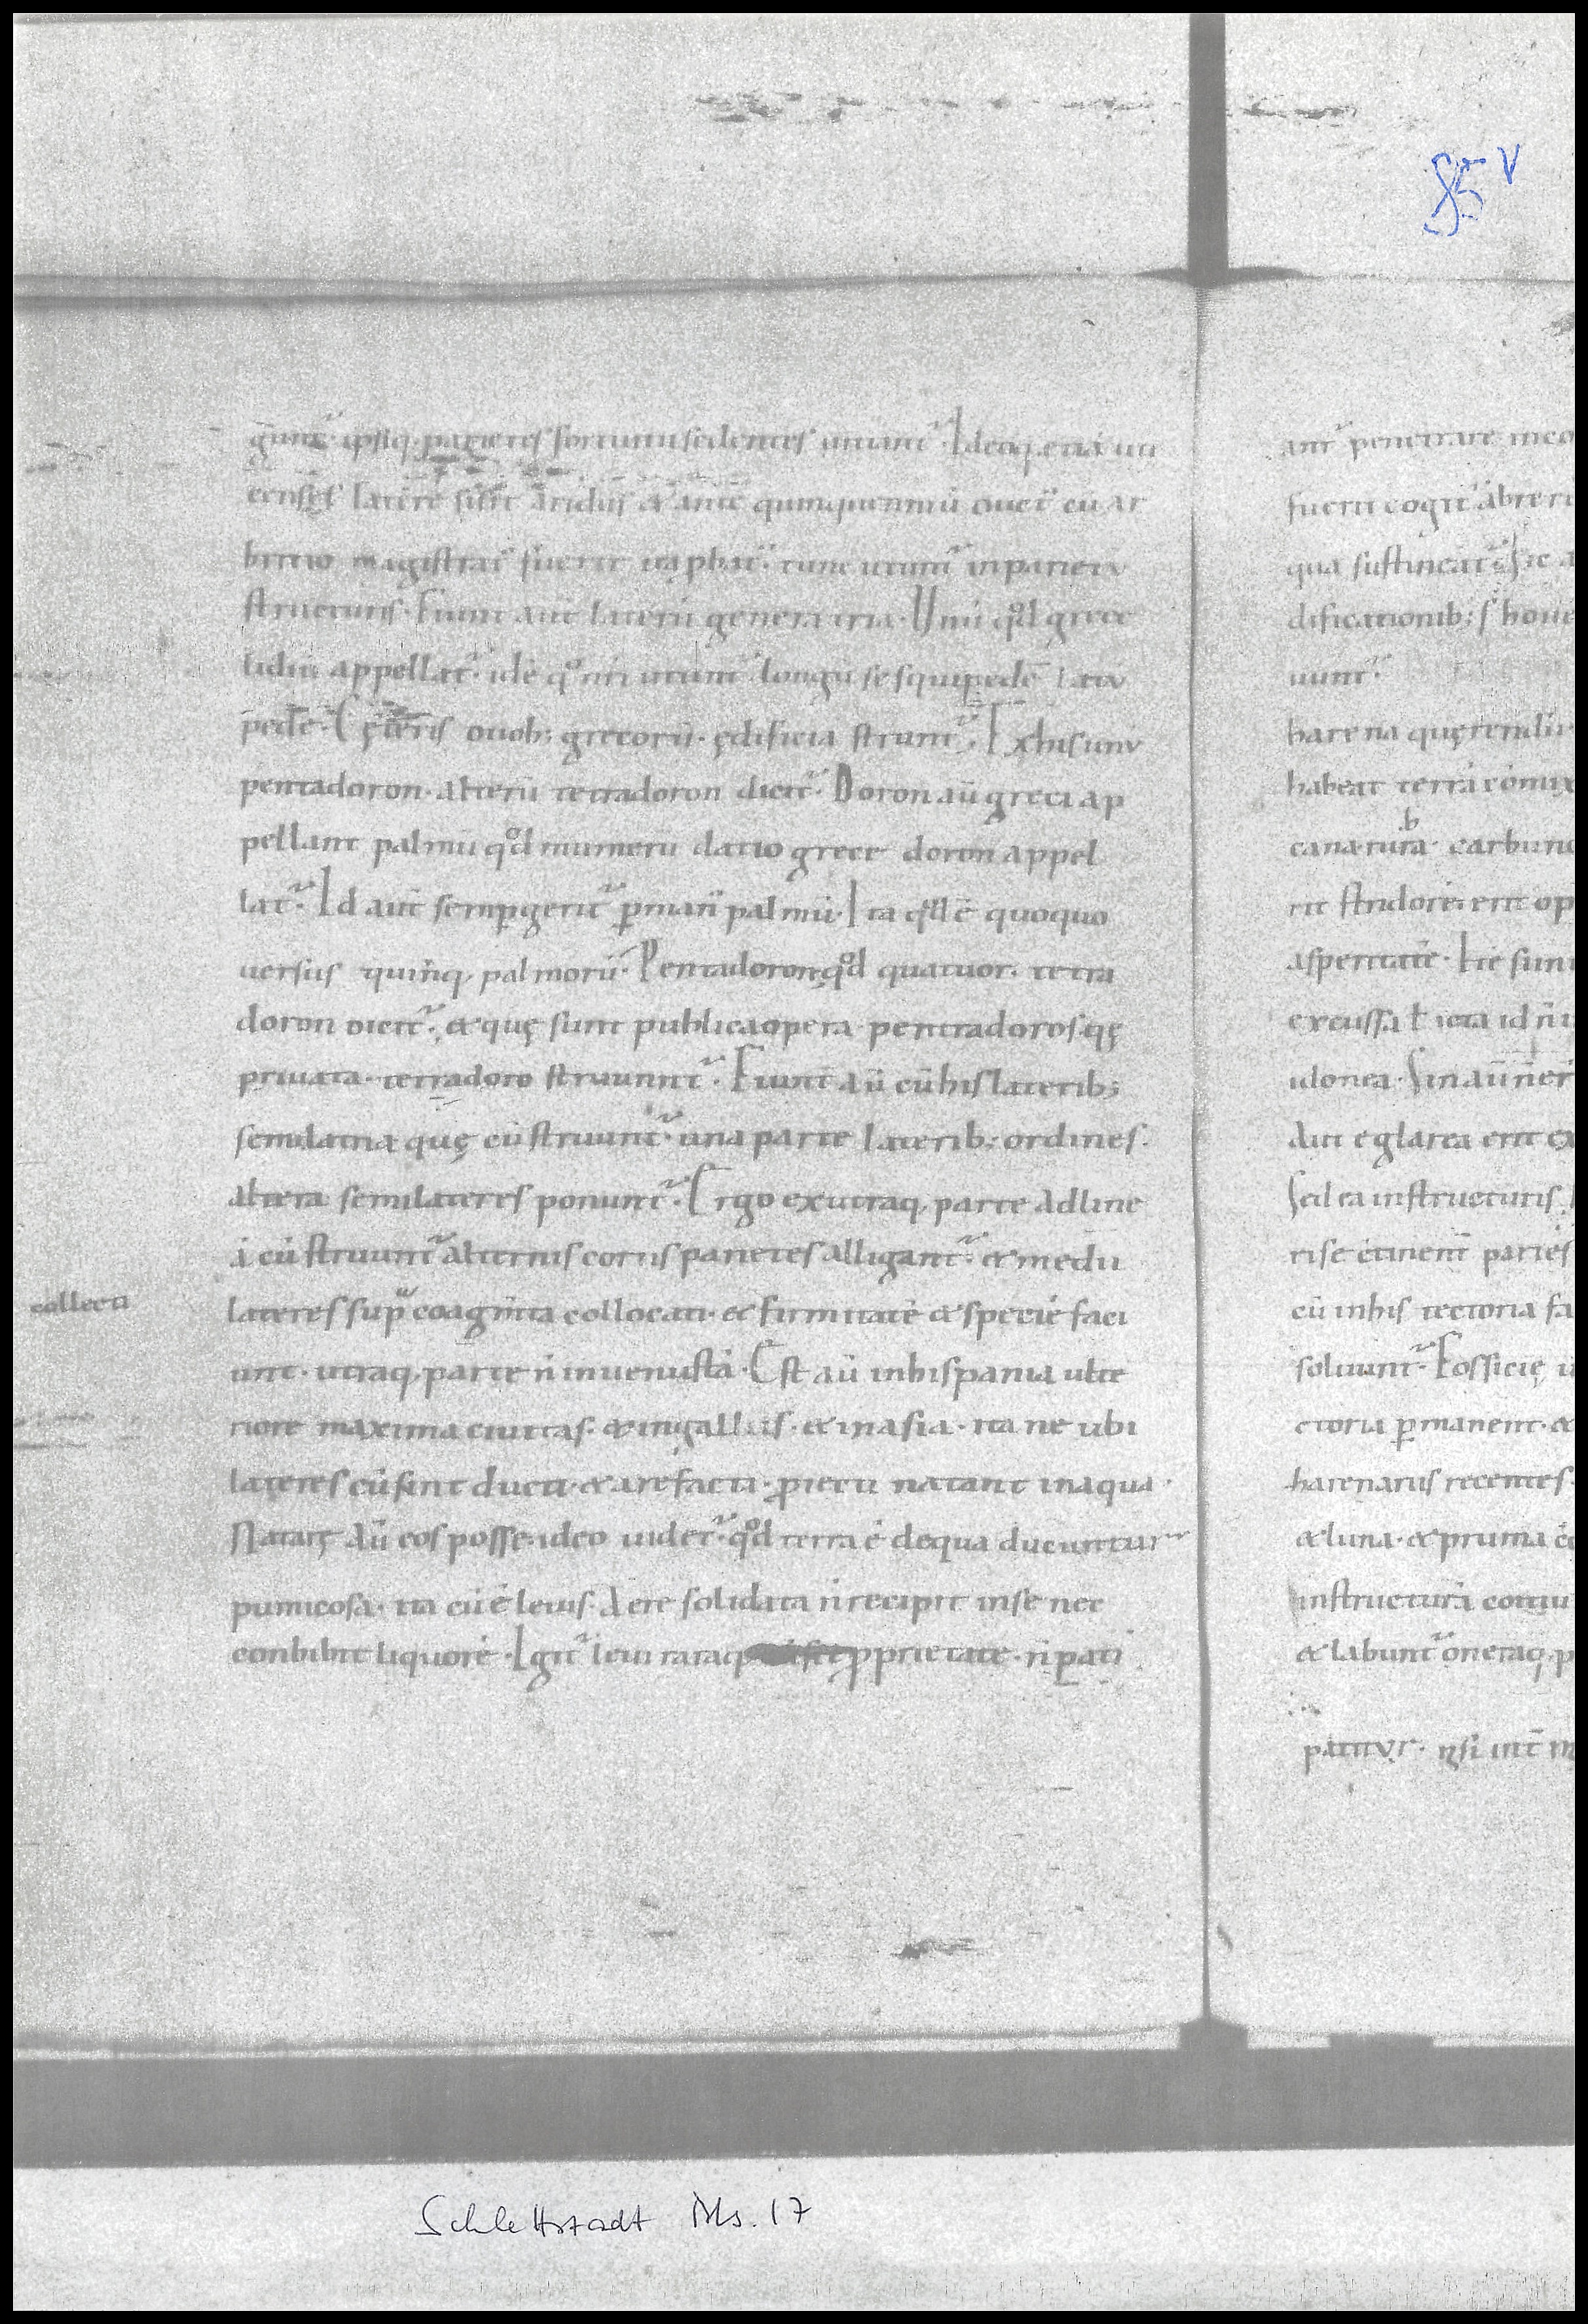 85 v
gunt᷑. ipsiq, parietes sortium sedentes uitiant᷑. Ideoq, etiā uti
censes latere si sit aridus & ante quinquenniū duct᷑ cū ar
bitrio magistrat᷑ fuerit ita phat᷑. tunc utunt᷑ in parietū
structuris. Fiunt aut̄ laterū genera tria. Unū qd̊ grece
lidiū appellat᷑. idē qͦ nri utunt᷑ longū sesquipedē latū
pede. Cęteris duob; grecorū. ędificia struunt᷑. Ex his unū
pentadoron. alterū tetradoron dicit᷑. Doron aū greci ap
pellant palmū qd̊ munerū datio grece doron appel
lat᷑. Id aut̄ semp̱ gerit᷑ p̱ manū palmū. Ita qd̊ ē quoquo
uersus quinq, palmorū. Pentadoron. qd̊ quatuor. tetra
doron dicit᷑. & quę sunt publica opera pentradoros. qę
priuata. terradoro struunt᷑. Fiunt aū cū his laterib;
semilatria quę cū struunt᷑. una parte laterib; ordines.
altera semilateres ponunt᷑. Ergo ex utraq, parte ad line
ā cū struunt᷑ alternis coriis parietes alligant᷑. & medii
lateres sup̱ coagmta collocati. & firmitatē & speciē faci
collecti
unt. utraq, parte n̄ inuenustā. Est aū in hispania ulte
riore maxima ciuitas. & in galliis. & in asia. ita ne ubi
lateres cū sint ducti. & arefacti. proiecti natant in aqua.
Natarę aū eos posse. ideo uidet᷑. qd̊ terra ē de qua ducuntur
pumicosa. ita cū ē leuis. aere solidata n̄ recipit in se nec
conbibit liquorē. Igit᷑ leui raraq, pprietate. n̄ pati
ant᷑ penetrare in co
fuerit cogit᷑ abre ri
qua sustineat᷑. Sic a
dificationib; s houe
uunt᷑.
harena quęrendū
habeat terrā cōmix
cana. rubra. carbunc
rit stridorē. erit op
asperitatē. Hę sunt
excussa ł icta id n̄ i
idonea. Sin aū n̄ er
aut e glarea erit ex
Sed ea in structuris.
ri se cōtinent paries
cū in his tectoria fa
soluunt᷑. Fossicię u
ctoria p̱manent. &
harenariis recentes
& luna. & pruina co
in structurā contiu
& labunt᷑ oneraq, p
patitur. nsi int̄ m
Schlettstadt Ms. 17